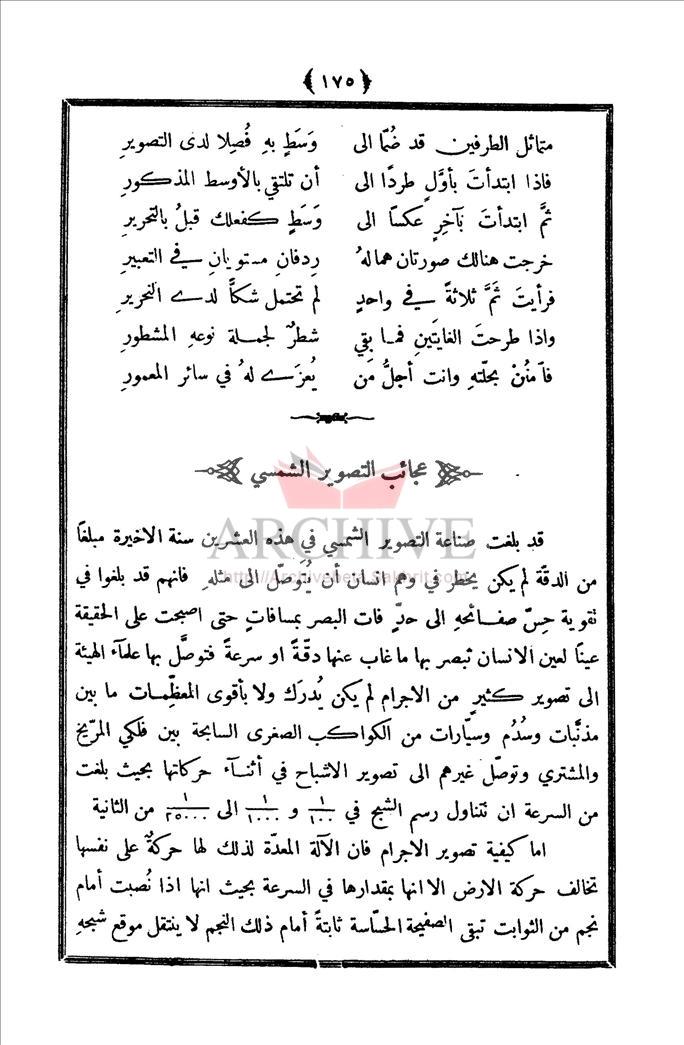 ﴿ ١٧٥ ﴾
متماثل الطرفين قد ضُمّا الى وَسَطٍ بهِ فُصِلا لدى التصويرِ
فاذا ابتدأتَ بأوَّلٍ طردًا الى أن تلتقي بالأوسط المذكورِ
ثمَّ ابتدأتَ بآخِرٍ عكسًا الى وَسَطٍ كفعلك قبلُ بالتحريرِ
خرجت هنالك صورتان هما لهُ رِدفانِ مستويانِ في التعبيرِ
فرأيتَ ثَمَّ ثلاثةً في واحدٍ لم تحتمل شكًّا لدے النحريرِ
واذا طرحتَ الغايتَينِ فما بقي شطرٌ لجملة نوعهِ المشطورِ
فآمنُنْ بحلّتهِ وانت أجلُّ مَن يُعزَے لهُ في سائر المعمورِ
عجائب التصوير الشمسي
ARCHIVE
http://Archivebeta.Sakhrit.com
قد بلغت صناعة التصوير الشمسي في هذه العشرين سنة الاخيرة مبلغًا
من الدقّة لم يكن يخطر في وهم انسان أن يُتَوصّل الى مثلهِ فانهم قد بلغوا في
تقوية حِسّ صفائحهِ الى حدٍّ فات البصر بمسافاتٍ حتى اصبحت على الحقيقة
عينًا لعين الانسان تبصر بها ما غاب عنها دقّةً او سرعةً فتوصَّل بها علمآء الهيئة
الى تصوير كثيرٍ من الاجرام لم يكن يُدرَك ولا بأقوى المعظِّمات ما بين
مذنَّبات وسُدُم وسيّارات من الكواكب الصغرى السابحة بين فلكي المرّيخ
والمشتري وتوصّل غيرهم الى تصوير الاشباح في أثنآء حركاتها بحيث بلغت
من السرعة ان تتناول رسم الشبح في ١/١٠٠ و ١/١٠٠٠ الى ١/٢٥٠٠٠ من الثانية
اما كيفية تصوير الاجرام فان الآلة المعدّة لذلك لها حركةٌ على نفسها
تخالف حركة الارض الا انها بمقدارها في السرعة بحيث انها اذا نُصبت أمام
نجم من الثوابت تبقى الصفيحة الحسّاسة ثابتةً أمام ذلك النجم لا ينتقل موقع شبحهِ